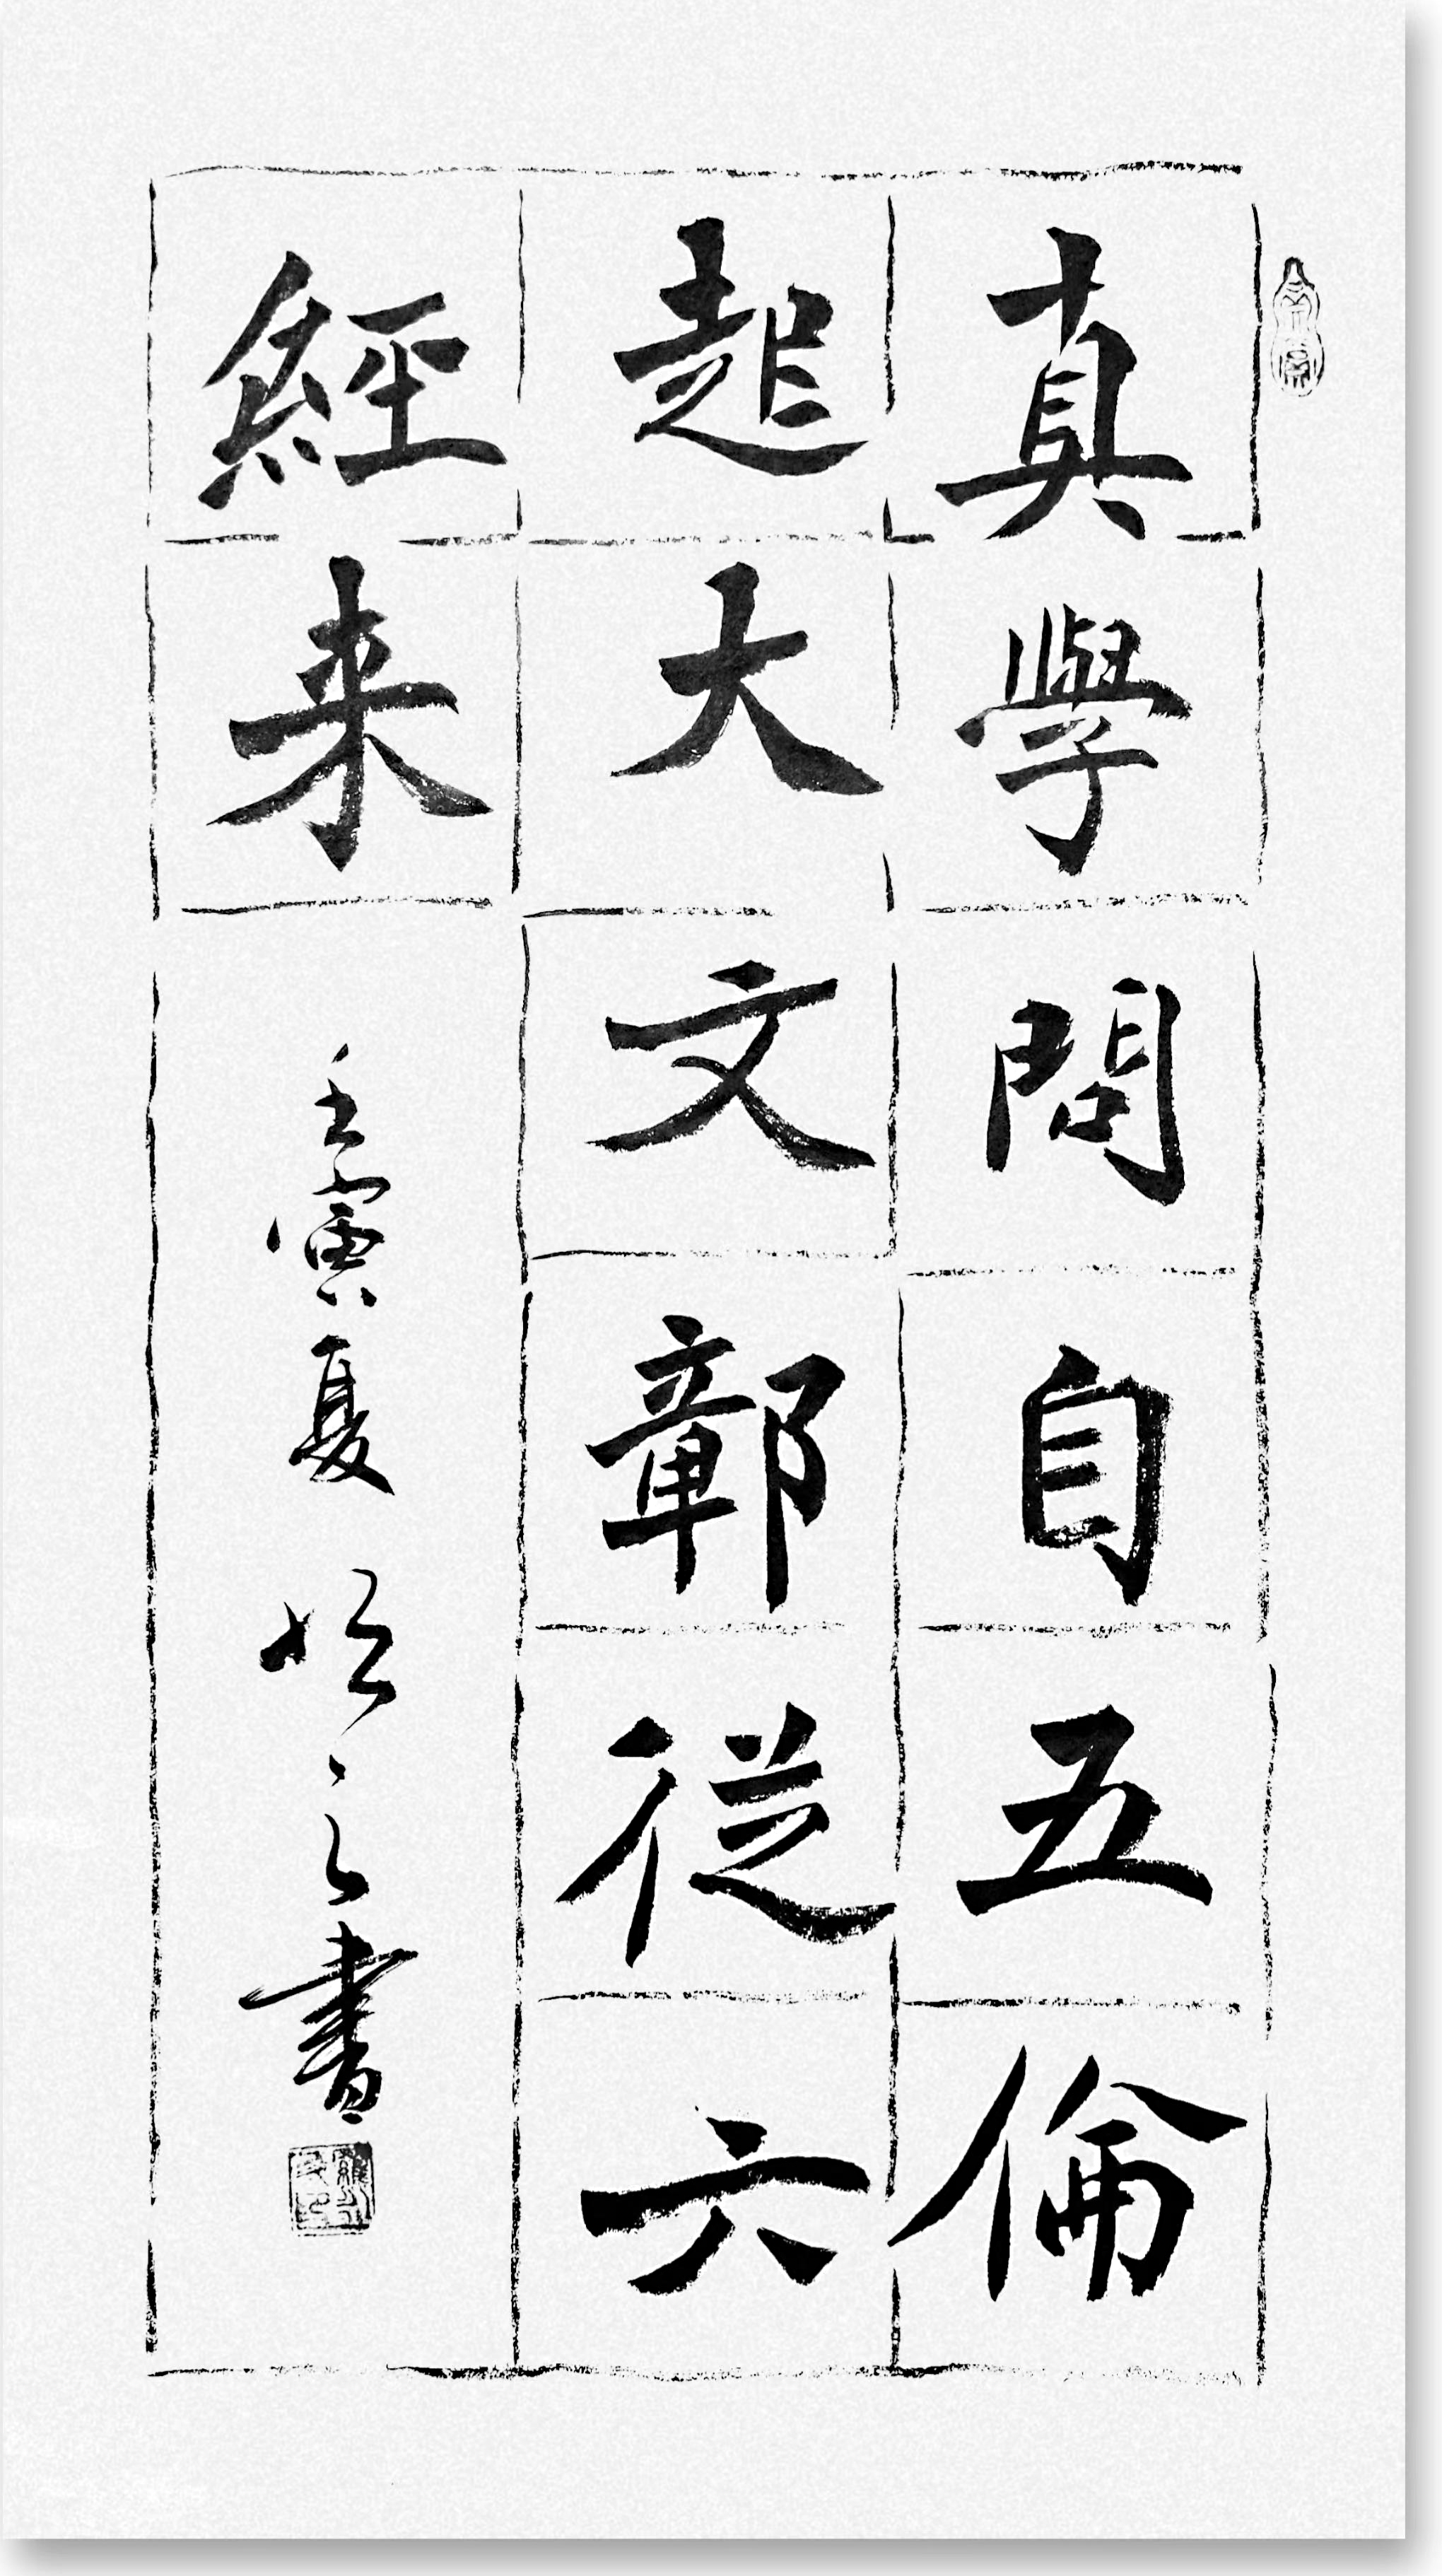 真學問自五倫
起大文鄣從六
經来
壬寅夏 之書